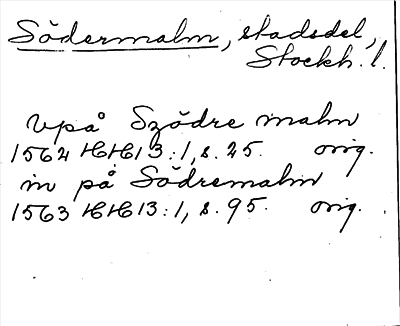 Södermalm, stadsdel,
Stockh. l.
Vpå Szödre malm
1562 HH 13:1, s. 25. orig.
in på Södremalm
1563 HH 13:1, s. 95. orig.